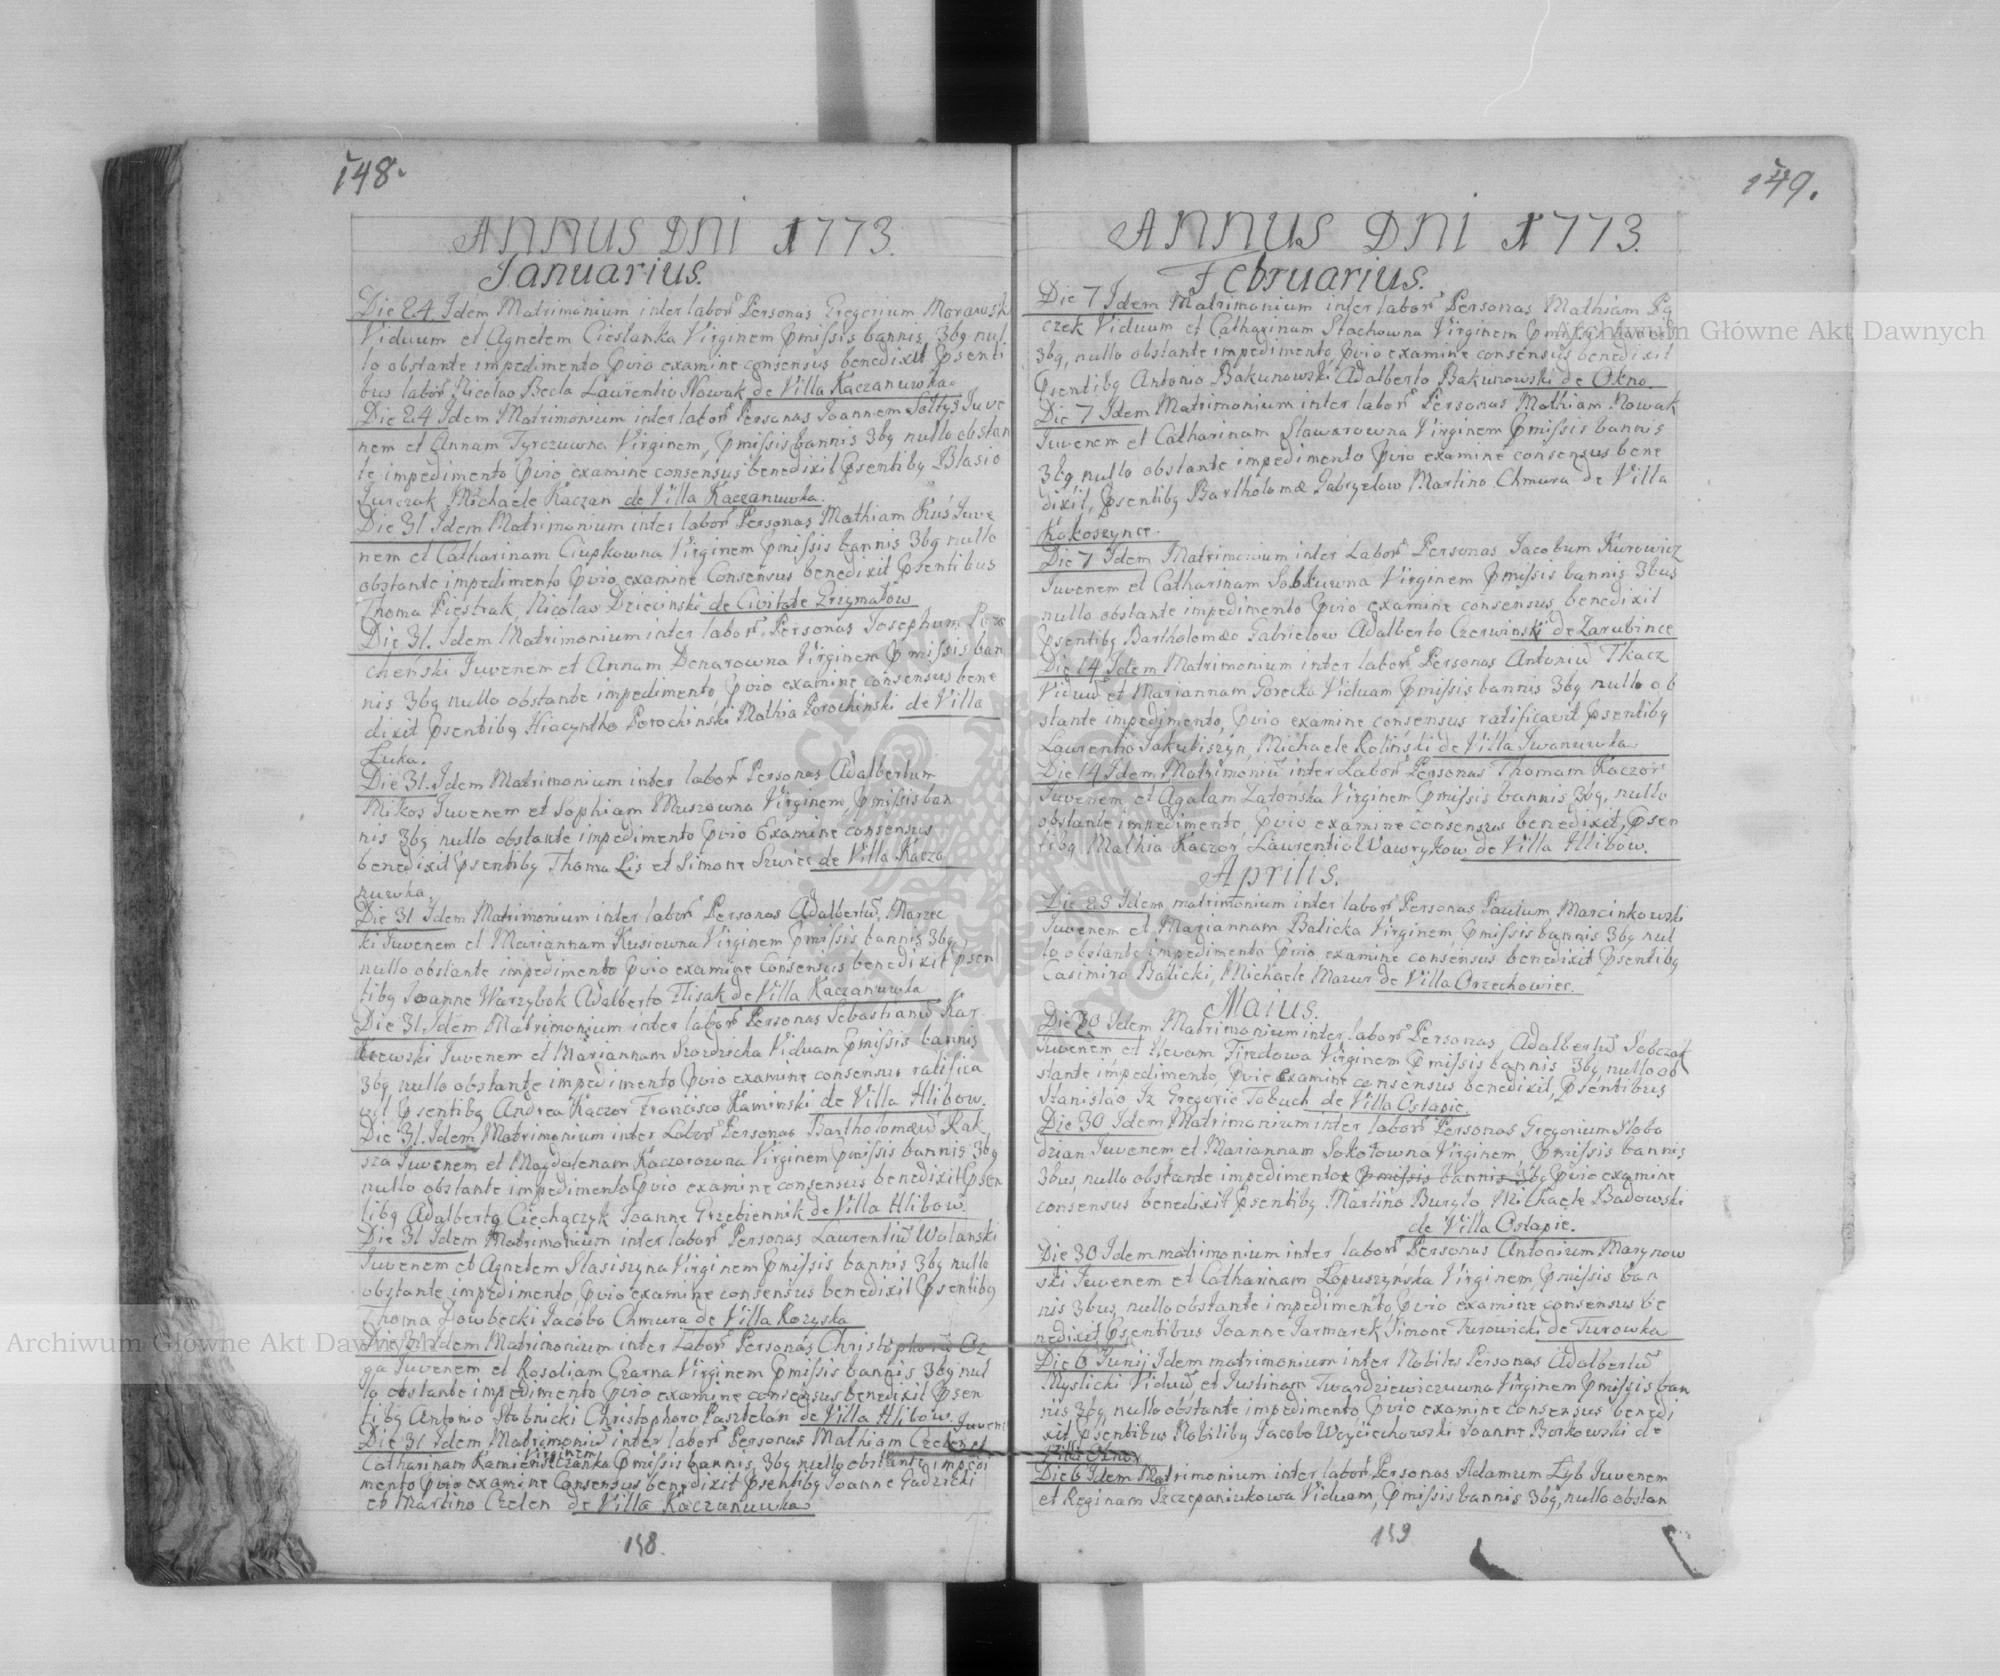 148.
ANNUS DNI 1773.
Januarius.
Die 24 Idem Matrimonium inter labor Personas Gregorium Morawski
Viduum et Agnetem Cieslanka Virginem Pmissis bannis 3bq nul
lo obstante impedimento Pvio examine consensus benedixit Psenti
bus labor Nicolao Becla Laurentio Nowak de Villa Kaczanuwka.
Die 24 Idem Matrimonium inter labor Personas Joannem Soltys Juve
nem et Annam Tyrczuwna Virginem, Pmissis bannis 3bq nullo obstan
te impedimento Pvio examine consensus benedixit Psentibq Blasio
Jurczak Michaele Kaczan de Villa Kaczanuwka.
Die 31 Idem Matrimonium inter labor Personas Mathiam Kuś Juve
nem et Catharinam Ciupkowna Virginem Pmissis bannis 3bq nullo
obstante impedimento Pvio examine Consensus benedixit Psentibus
Thoma Piestrak, Nicolao Dziecinski de Civitate Grzymalow
Die 31. Idem Matrimonium inter labor Personas Josephum Poro
chenski Juvenem et Annam Denarowna Virginem Pmissis ban
nis 3bq nullo obstante impedimento Pvio examine consensus bene
dixit Psentibq Hiacyntho Porochinski Mathia Porochinski de Villa
Luka.
Die 31. Idem Matrimonium inter labor Personas Adalbertum
Mikos Juvenem et Sophiam Muszowna Virginem, Pmissis ban
nis 3bq nullo obstante impedimento Pvio Examine consensus
benedixit Psentibq Thoma Lis et Simone Szwiec de Villa Kacza
nuwka.
Die 31 Idem Matrimonium inter labor Personas Adalbertu Marzec
ki Juvenem et Mariannam Kusiowna Virginem Pmissis bannis 3bq
nullo obstante impedimento Pvio examine Consensus benedixit Psen
tibq Joanne Warzybok Adalberto Flisak de Villa Kaczanuwka
Die 31. Idem Matrimonium inter labor Personas Sebastianu Kar
czewski Juvenem et Mariannam Szardzicka Viduam Pmissis bannis
3bq nullo obstante impedimento Pvio examine consensus ratifica
vit Psentibq Andrea Kaczor Francisco Kaminski de Villa Hlibow.
Die 31. Idem Matrimonium inter Labor Personas Bartholomaeu Rak
sza Juvenem et Magdalenam Kaczorowna Virginem Pmissis bannis 3bq
nullo obstante impedimento Pvio examine consensus benedixit Psen
tibq Adalberto Ciechączyk Joanne Grzebiennik de Villa Hlibow.
Die 31 Idem Matrimonium inter labor Personas Laurentiu Wolanski
Juvenem et Agnetem Stasiszyna Virginem Pmissis bannis 3bq nullo
obstante impedimento, Pvio examine consensus benedixit Psentibq
Thoma Jowbecki Jacobo Chmura de Villa Rozyska
Die 31 Idem Matrimonium inter Labor Personas Christophoru Oz
ga Juvenem et Rosaliam Czarna Virginem Pmissis bannis 3bq nul
lo obstante impedimento Pvio examine consensus benedixit Psen
tibq Antonio Stobnicki Christophoro Pasztelan de Villa Hlibow.
Juvene
Die 31 Idem Matrimoniu inter labor Personas Mathiam Czelen et
Virginem
Catharinam Kamienszczanka Pmissis bannis 3bq nullo obstante impedi
mento Pvio examine Consensus benedixit Psentibq Joanne Gadzicki
et Martino Czelen de Villa Kaczanuwka
158.
149.
ANNUS DNI 1773.
Februarius.
Die 7 Idem Matrimonium inter labor Personas Mathiam Pą
czek Viduum et Catharinam Stachowna Virginem Pmissis bannis
3bq, nullo obstante impedimento, Pvio examine consensus benedixit
Psentibq Antonio Bakunowski Adalberto Bakunowski de Okno.
Die 7 Idem Matrimonium inter labor Personas Mathiam Nowak
Juvenem et Catharinam Slawarowna Virginem Pmissis bannis
3bq nullo obstante impedimento Pvio examine consensus bene
dixit, Psentibq Bartholomae Gabryelow Martino Chmura de Villa
Kokoszynce.
Die 7 Idem Matrimonium inter Labor Personas Jacobum Kurowicz
Juvenem et Catharinam Sobkuwna Virginem Pmissis bannis 3bus
nullo obstante impedimento Pvio examine consensus benedixit
Psentibq Bartholomaeo Gabrielow Adalberto Czerwinski de Zarubince
Die 14 Idem Matrimonium inter labor Personas Antoniu Tkacz
Viduu et Mariannam Gorecka Viduam Pmissis bannis 3bq nullo ob
stante impedimento, Pvio examine consensus ratificavit Psentibq
Laurentio Jakubiszyn, Michaele Rolinski de Villa Iwanuwka
Die 14 Idem Matrimoniu inter Labor Personas Thomam Kaczor
Juvenem et Agatam Zatońska Virginem Pmissis bannis 3bq, nullo
obstante impedimento Pvio examine consensus benedixit, Psen
tibq Mathia Kaczor, Laurentio Wawrykow de Villa Hlibow.
Aprilis.
Die 25 Idem matrimonium inter labor Personas Paulum Marcinkowski
Juvenem et Mariannam Balicka Virginem, Pmissis bannis 3bq nul
lo obstante impedimento Pvio examine consensus benedixit Psentibq
Casimiro Balicki, Michaele Mazur de Villa Orzechowiec.
Maius.
Die 30 Idem Matrimonium inter labor Personas Adalbertu Sobczak
Juvenem et Hevam Firedowa Virginem Pmissis bannis 3bq nullo ob
stante impedimento, Pvio examine consensus benedixit, Psentibus
Stanislao Iz Gregorio Tobuch de Villa Ostapie.
Die 30 Idem Matrimonium inter labor Personas Gregorium Slobo
dzian Juvenem et Mariannam Sokołowna Virginem, Pmissis bannis
3bus, nullo obstante impedimento Pmissis bannis 3bq Pvio examine
consensus benedixit Psentibq Martino Buryło Michaele Badowski
de Villa Ostapie.
Die 30 Idem matrimonium inter labor Personas Antonium Marynow
ski Juvenem et Catharinam Lopuszyńska Virginem, Pmissis ban
nis 3bus, nullo obstante impedimento, Pvio examine consensus be
nedixit Psentibus Joanne Jarmarek Simone Turowicki de Turowka
Die 6 Junij Idem matrimonium inter Nobiles Personas Adalbertu
Myslicki Viduu et Justinam Twardziewiczuwna Virginem Pmissis ban
nis 3bq nullo obstante impedimento Pvio examine consensus benedi
xit Psentibus Nobilibq Jacobo Woyciechowski Joanne Borkowski de
Villa Okno
Die 6 Idem Matrimonium inter labor, Personas Adamum Lyb Juvenem
et Reginam Szczepaniukowa Viduam, Pmissis bannis 3bq, nullo obstan
159
Archiwum Główne Akt Dawnych
Archiwum Główne Akt Dawnych